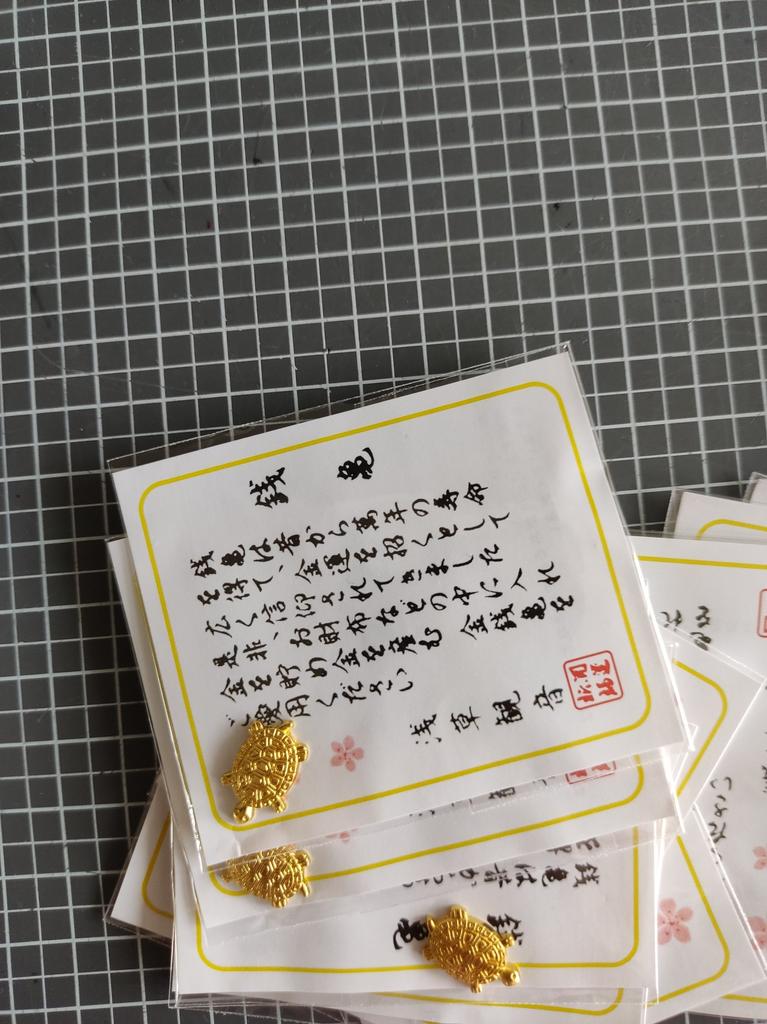 銭亀
銭亀は昔から萬年の寿命
を得て、金運を招くとして
広く信仰されてきました
是非、お財布などの中に入れ
金を貯め金を産む 金銭亀を
ご愛用ください
浅草観音
銭亀
銭亀は昔から